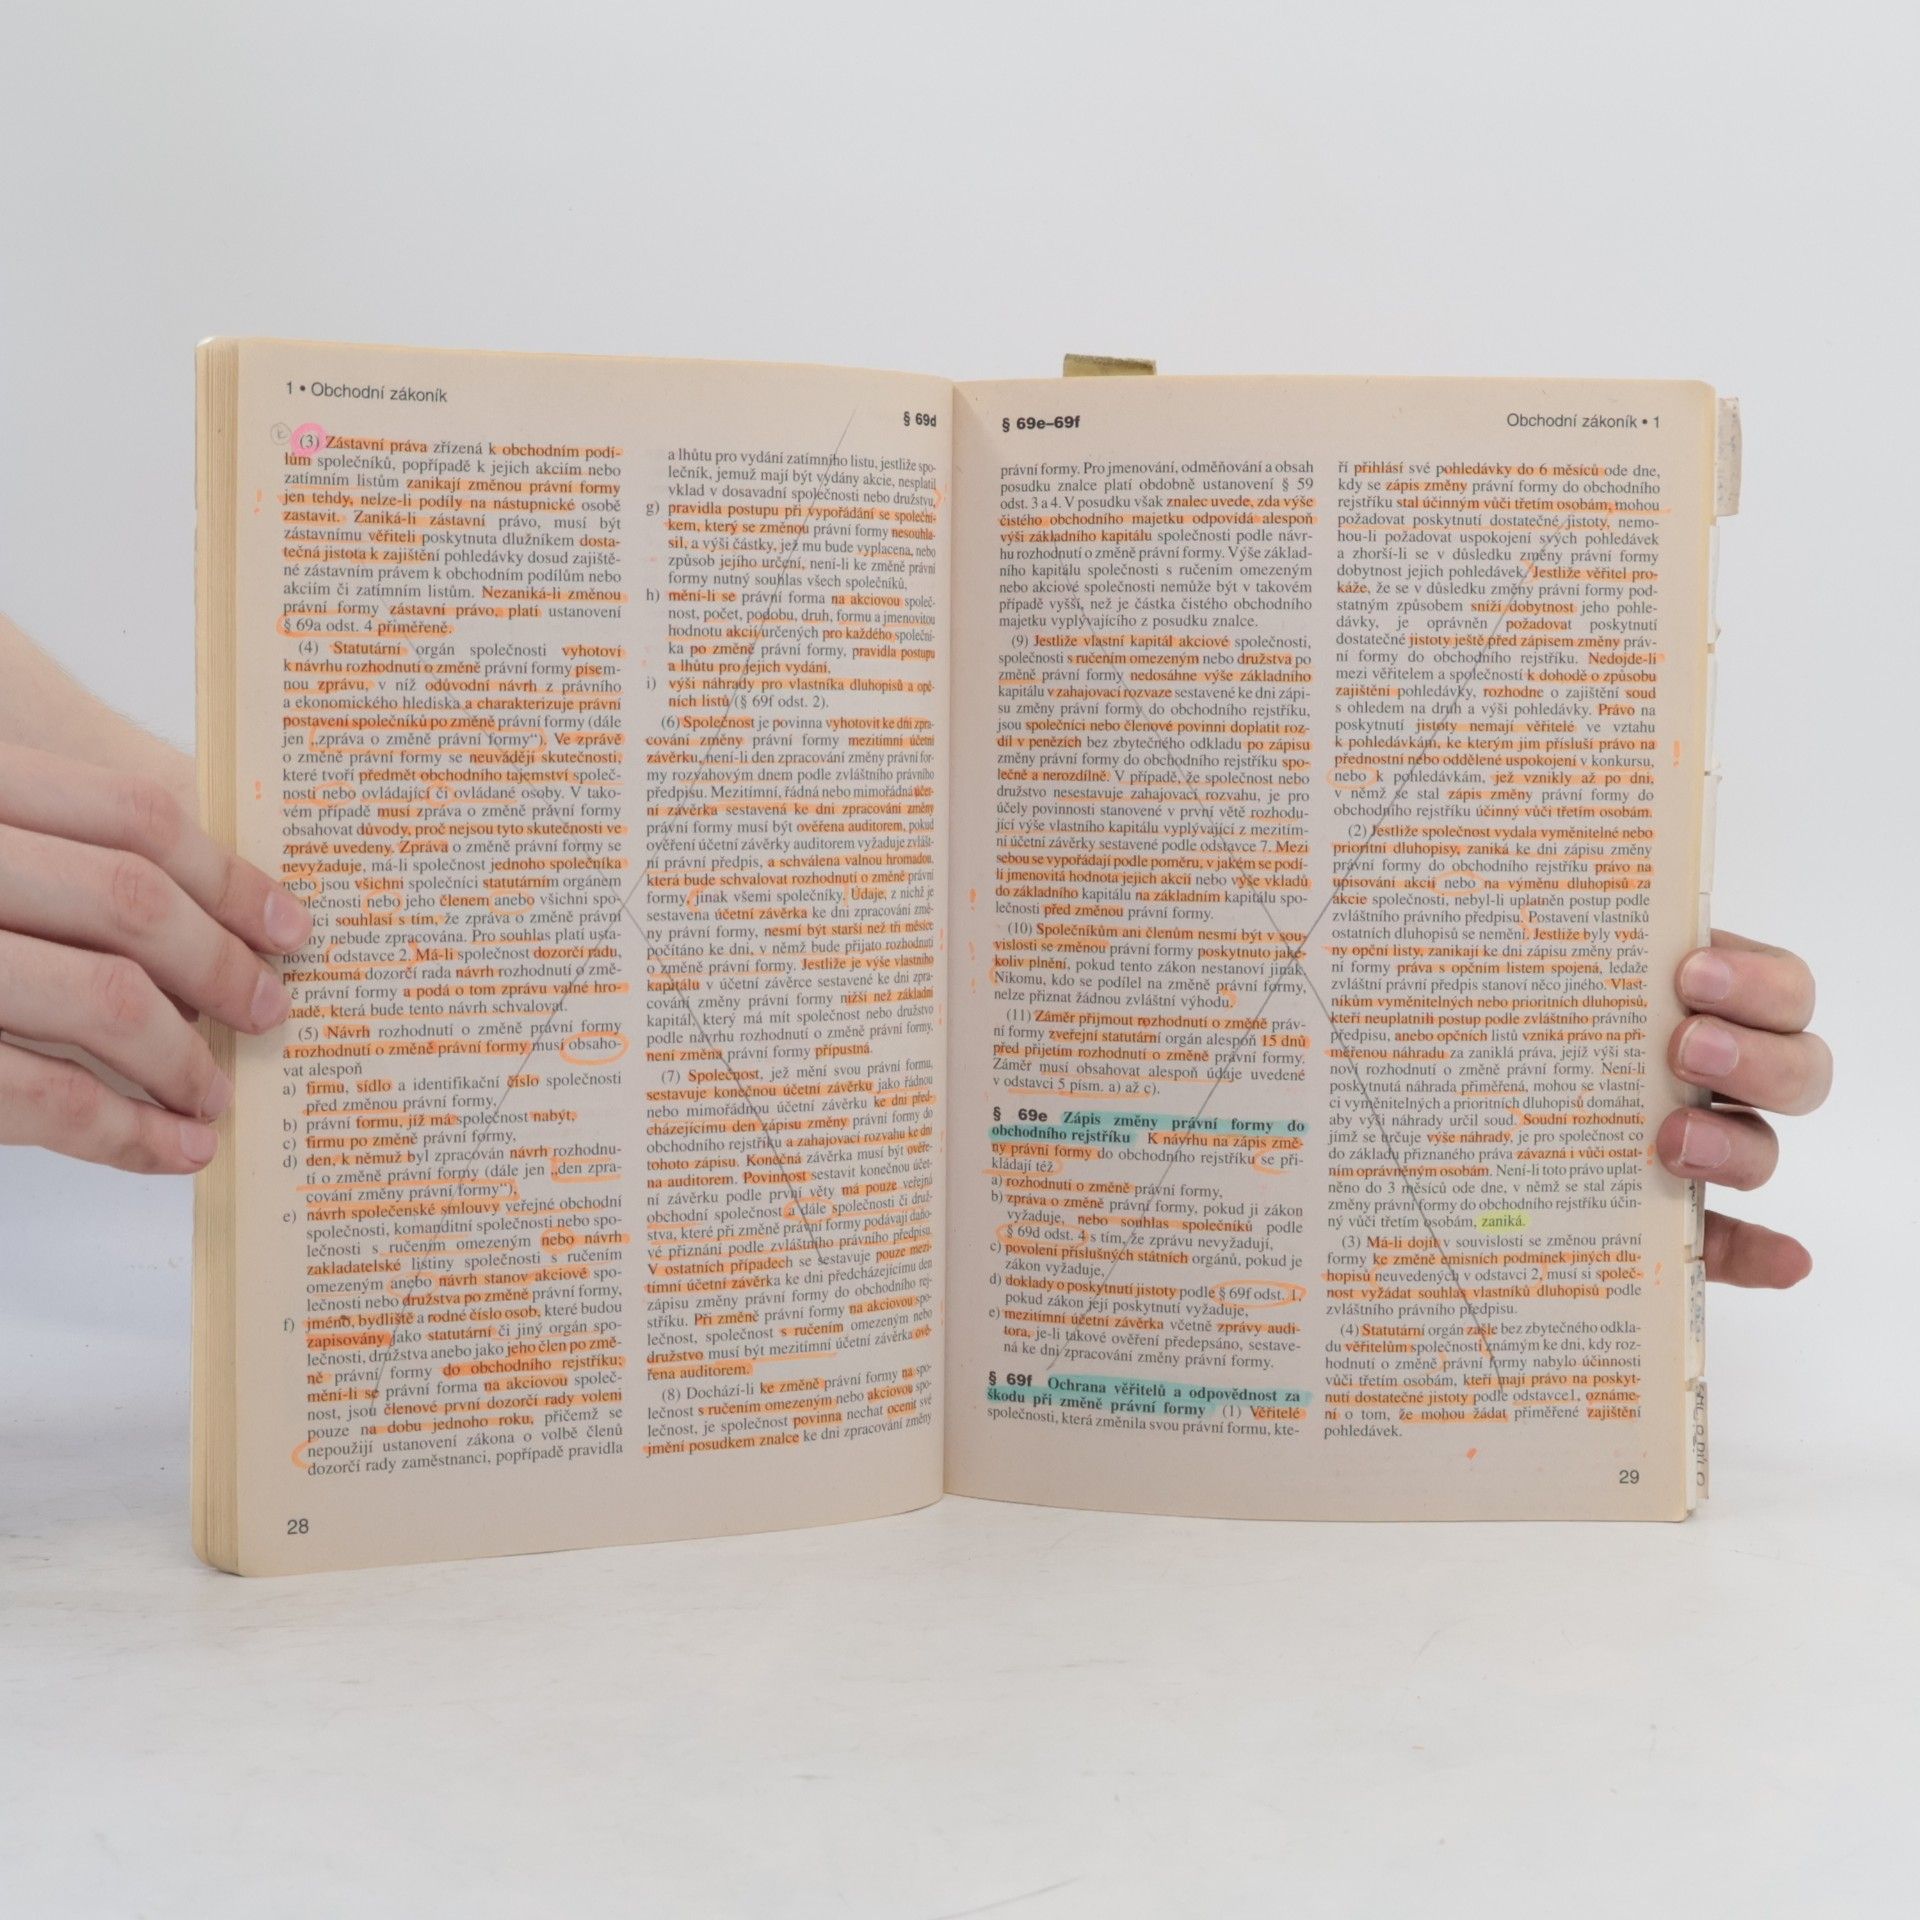 1 • Obchodní zákoník
§ 69d
(3) Zástavní práva zřízená k obchodním podí-
lům společníků, popřípadě k jejich akciím nebo
zatímním listům zanikají změnou právní formy
jen tehdy, nelze-li podíly na nástupnické osobě
zastavit. Zaniká-li zástavní právo, musí být
zástavnímu věřiteli poskytnuta dlužníkem dosta-
tečná jistota k zajištění pohledávky dosud zajiště-
né zástavním právem k obchodním podílům nebo
akciím či zatímním listům. Nezaniká-li změnou
právní formy zástavní právo, platí ustanovení
§ 69a odst. 4 přiměřeně.
(4) Statutární orgán společnosti vyhotoví
k návrhu rozhodnutí o změně právní formy písem-
nou zprávu, v níž odůvodní návrh z právního
a ekonomického hlediska a charakterizuje právní
postavení společníků po změně právní formy (dále
jen „zpráva o změně právní formy“). Ve zprávě
o změně právní formy se neuvádějí skutečnosti,
které tvoří předmět obchodního tajemství společ-
nosti nebo ovládající či ovládané osoby. V tako-
vém případě musí zpráva o změně právní formy
obsahovat důvody, proč nejsou tyto skutečnosti ve
zprávě uvedeny. Zpráva o změně právní formy se
nevyžaduje, má-li společnost jednoho společníka
nebo jsou všichni společníci statutárním orgánem
olečnosti nebo jeho členem anebo všichni spo-
íci souhlasí s tím, že zpráva o změně právní
ny nebude zpracována. Pro souhlas platí usta-
novení odstavce 2. Má-li společnost dozorčí radu,
přezkoumá dozorčí rada návrh rozhodnutí o změ-
ě právní formy a podá o tom zprávu valné hro-
madě, která bude tento návrh schvalovat.
(5) Návrh rozhodnutí o změně právní formy
a rozhodnutí o změně právní formy musí obsaho-
vat alespoň
a) firmu, sídlo a identifikační číslo společnosti
před změnou právní formy,
b) právní formu, jíž má společnost nabýt,
c) firmu po změně právní formy,
d) den, k němuž byl zpracován návrh rozhodnu-
tí o změně právní formy (dále jen „den zpra-
cování změny právní formy“),
e) návrh společenské smlouvy veřejné obchodní
společnosti, komanditní společnosti nebo spo-
lečnosti s ručením omezeným nebo návrh
zakladatelské listiny společnosti s ručením
omezeným anebo návrh stanov akciové spo-
lečnosti nebo družstva po změně právní formy,
f) jméno, bydliště a rodné číslo osob, které budou
zapisovány jako statutární či jiný orgán spo-
lečnosti, družstva anebo jako jeho člen po změ-
ně právní formy do obchodního rejstříku;
mění-li se právní forma na akciovou společ-
nost, jsou členové první dozorčí rady voleni
pouze na dobu jednoho roku, přičemž se
nepoužijí ustanovení zákona o volbě členů
dozorčí rady zaměstnanci, popřípadě pravidla
28
a lhůtu pro vydání zatímního listu, jestliže spo-
lečník, jemuž mají být vydány akcie, nesplatil
vklad v dosavadní společnosti nebo družstvu,
g) pravidla postupu při vypořádání se společní-
kem, který se změnou právní formy nesouhla-
sil, a výši částky, jež mu bude vyplacena, nebo
způsob jejího určení, není-li ke změně právní
formy nutný souhlas všech společníků,
h) mění-li se právní forma na akciovou společ-
nost, počet, podobu, druh, formu a jmenovitou
hodnotu akcií určených pro každého společní-
ka po změně právní formy, pravidla postupu
a lhůtu pro jejich vydání,
i) výši náhrady pro vlastníka dluhopisů a opč-
ních listů (§ 69f odst. 2).
(6) Společnost je povinna vyhotovit ke dni zpra-
cování změny právní formy mezitímní účetní
závěrku, není-li den zpracování změny právní for-
my rozvahovým dnem podle zvláštního právního
předpisu. Mezitímní, řádná nebo mimořádná účet-
ní závěrka sestavená ke dni zpracování změny
právní formy musí být ověřena auditorem, pokud
ověření účetní závěrky auditorem vyžaduje zvlášt-
ní právní předpis, a schválena valnou hromadou,
která bude schvalovat rozhodnutí o změně právní
formy, jinak všemi společníky. Údaje, z nichž je
sestavena účetní závěrka ke dni zpracování změ-
ny právní formy, nesmí být starší než tři měsíce
počítáno ke dni, v němž bude přijato rozhodnutí
o změně právní formy. Jestliže je výše vlastního
kapitálu v účetní závěrce sestavené ke dni zpra-
cování změny právní formy nižší než základní
kapitál, který má mít společnost nebo družstvo
podle návrhu rozhodnutí o změně právní formy,
není změna právní formy přípustná.
(7) Společnost, jež mění svou právní formu,
sestavuje konečnou účetní závěrku jako řádnou
nebo mimořádnou účetní závěrku ke dni před-
cházejícímu den zápisu změny právní formy do
obchodního rejstříku a zahajovací rozvahu ke dni
tohoto zápisu. Konečná závěrka musí být ověře-
na auditorem. Povinnost sestavit konečnou účet-
ní závěrku podle první věty má pouze veřejná
obchodní společnost a dále společnosti či druž-
stva, které při změně právní formy podávají daňo-
vé přiznání podle zvláštního právního předpisu.
V ostatních případech se sestavuje pouze mezi-
tímní účetní závěrka ke dni předcházejícímu den
zápisu změny právní formy do obchodního rej-
stříku. Při změně právní formy na akciovou spo-
lečnost, společnost s ručením omezeným nebo
družstvo musí být mezitímní účetní závěrka ově-
řena auditorem.
(8) Dochází-li ke změně právní formy na spo-
lečnost s ručením omezeným nebo akciovou spo-
lečnost, je společnost povinna nechat ocenit své
jmění posudkem znalce ke dni zpracování změny
§ 69e–69f
Obchodní zákoník • 1
právní formy. Pro jmenování, odměňování a obsah
posudku znalce platí obdobně ustanovení § 59
odst. 3 a 4. V posudku však znalec uvede, zda výše
čistého obchodního majetku odpovídá alespoň
výši základního kapitálu společnosti podle návr-
hu rozhodnutí o změně právní formy. Výše základ-
ního kapitálu společnosti s ručením omezeným
nebo akciové společnosti nemůže být v takovém
případě vyšší, než je částka čistého obchodního
majetku vyplývajícího z posudku znalce.
(9) Jestliže vlastní kapitál akciové společnosti,
společnosti s ručením omezeným nebo družstva po
změně právní formy nedosáhne výše základního
kapitálu v zahajovací rozvaze sestavené ke dni zápi-
su změny právní formy do obchodního rejstříku,
jsou společníci nebo členové povinni doplatit roz-
díl v penězích bez zbytečného odkladu po zápisu
změny právní formy do obchodního rejstříku spo-
lečně a nerozdílně. V případě, že společnost nebo
družstvo nesestavuje zahajovací rozvahu, je pro
účely povinnosti stanovené v první větě rozhodu-
jící výše vlastního kapitálu vyplývající z mezitím-
ní účetní závěrky sestavené podle odstavce 7. Mezi
sebou se vypořádají podle poměru, v jakém se podí-
lí jmenovitá hodnota jejich akcií nebo výše vkladů
do základního kapitálu na základním kapitálu spo-
lečnosti před změnou právní formy.
(10) Společníkům ani členům nesmí být v sou-
vislosti se změnou právní formy poskytnuto jaké-
koliv plnění, pokud tento zákon nestanoví jinak.
Nikomu, kdo se podílel na změně právní formy,
nelze přiznat žádnou zvláštní výhodu.
(11) Záměr přijmout rozhodnutí o změně práv-
ní formy zveřejní statutární orgán alespoň 15 dnů
před přijetím rozhodnutí o změně právní formy.
Záměr musí obsahovat alespoň údaje uvedené
v odstavci 5 písm. a) až c).
§ 69e Zápis změny právní formy do
obchodního rejstříku K návrhu na zápis změ-
ny právní formy do obchodního rejstříku se při-
kládají též
a) rozhodnutí o změně právní formy,
b) zpráva o změně právní formy, pokud ji zákon
vyžaduje, nebo souhlas společníků podle
§ 69d odst. 4 s tím, že zprávu nevyžadují,
c) povolení příslušných státních orgánů, pokud je
zákon vyžaduje,
d) doklady o poskytnutí jistoty podle § 69f odst. 1,
pokud zákon její poskytnutí vyžaduje,
e) mezitímní účetní závěrka včetně zprávy audi-
tora, je-li takové ověření předepsáno, sestave-
ná ke dni zpracování změny právní formy.
§ 69f Ochrana věřitelů a odpovědnost za
škodu při změně právní formy (1) Věřitelé
společnosti, která změnila svou právní formu, kte-
ří přihlásí své pohledávky do 6 měsíců ode dne,
kdy se zápis změny právní formy do obchodního
rejstříku stal účinným vůči třetím osobám, mohou
požadovat poskytnutí dostatečné jistoty, nemo-
hou-li požadovat uspokojení svých pohledávek
a zhorší-li se v důsledku změny právní formy
dobytnost jejich pohledávek. Jestliže věřitel pro-
káže, že se v důsledku změny právní formy pod-
statným způsobem sníží dobytnost jeho pohle-
dávky, je oprávněn požadovat poskytnutí
dostatečné jistoty ještě před zápisem změny práv-
ní formy do obchodního rejstříku. Nedojde-li
mezi věřitelem a společností k dohodě o způsobu
zajištění pohledávky, rozhodne o zajištění soud
s ohledem na druh a výši pohledávky. Právo na
poskytnutí jistoty nemají věřitelé ve vztahu
k pohledávkám, ke kterým jim přísluší právo na
přednostní nebo oddělené uspokojení v konkursu,
nebo k pohledávkám, jež vznikly až po dni,
v němž se stal zápis změny právní formy do
obchodního rejstříku účinný vůči třetím osobám.
(2) Jestliže společnost vydala vyměnitelné nebo
prioritní dluhopisy, zaniká ke dni zápisu změny
právní formy do obchodního rejstříku právo na
upisování akcií nebo na výměnu dluhopisů za
akcie společnosti, nebyl-li uplatněn postup podle
zvláštního právního předpisu. Postavení vlastníků
ostatních dluhopisů se nemění. Jestliže byly vydá-
ny opční listy, zanikají ke dni zápisu změny práv-
ní formy práva s opčním listem spojená, ledaže
zvláštní právní předpis stanoví něco jiného. Vlast-
níkům vyměnitelných nebo prioritních dluhopisů,
kteří neuplatnili postup podle zvláštního právního
předpisu, anebo opčních listů vzniká právo na při-
měřenou náhradu za zaniklá práva, jejíž výši sta-
noví rozhodnutí o změně právní formy. Není-li
poskytnutá náhrada přiměřená, mohou se vlastní-
ci vyměnitelných a prioritních dluhopisů domáhat,
aby výši náhrady určil soud. Soudní rozhodnutí,
jímž se určuje výše náhrady, je pro společnost co
do základu přiznaného práva závazná i vůči ostat-
ním oprávněným osobám. Není-li toto právo uplat-
něno do 3 měsíců ode dne, v němž se stal zápis
změny právní formy do obchodního rejstříku účin-
ný vůči třetím osobám, zaniká.
(3) Má-li dojít v souvislosti se změnou právní
formy ke změně emisních podmínek jiných dlu-
hopisů neuvedených v odstavci 2, musí si společ-
nost vyžádat souhlas vlastníků dluhopisů podle
zvláštního právního předpisu.
(4) Statutární orgán zašle bez zbytečného odkla-
du věřitelům společnosti známým ke dni, kdy roz-
hodnutí o změně právní formy nabylo účinnosti
vůči třetím osobám, kteří mají právo na poskyt-
nutí dostatečné jistoty podle odstavce1, oznáme-
ní o tom, že mohou žádat přiměřené zajištění
pohledávek.
29